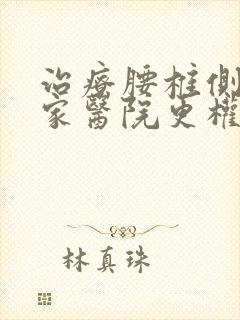 治療腰柱側
家醫院更權
林真珠